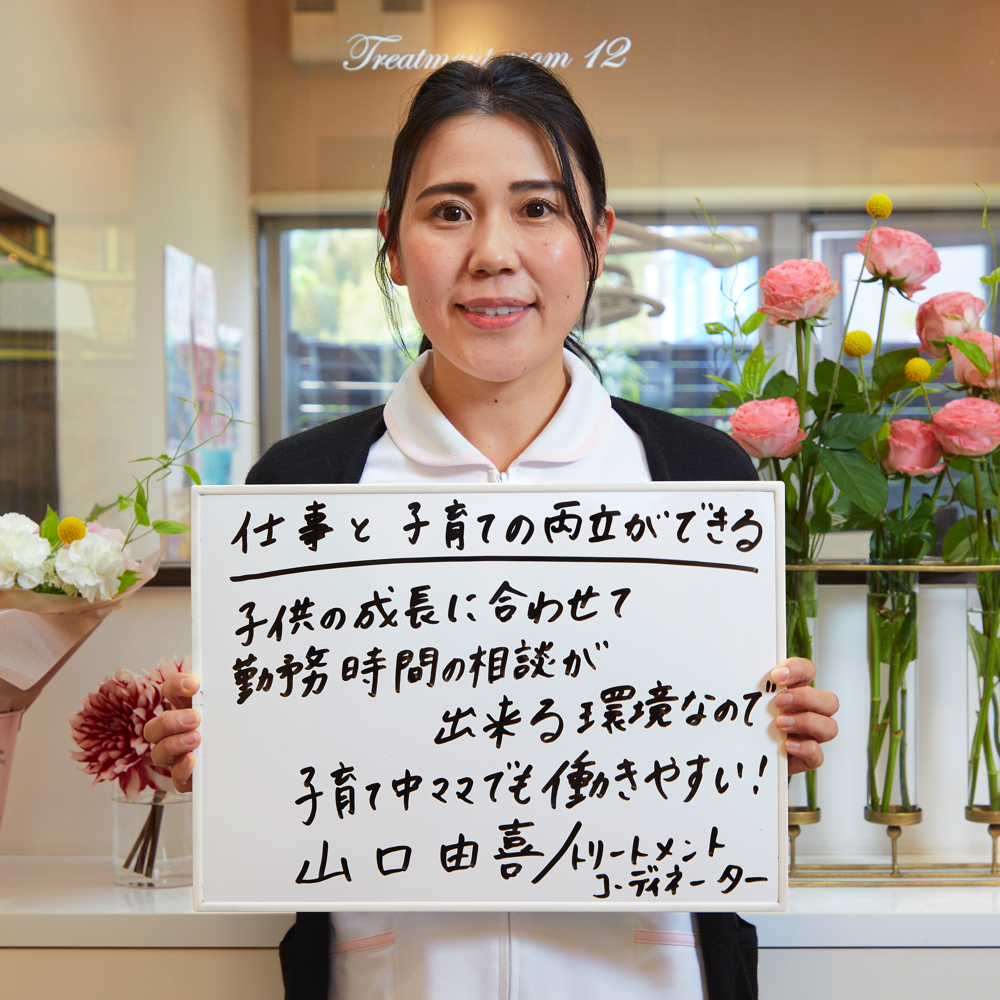 Treatment room 12
仕事と子育ての両立ができる
子供の成長に合わせて
勤務時間の相談が
出来る環境なので
子育て中ママでも働きやすい!
山口由喜/トリートメント
コーディネーター